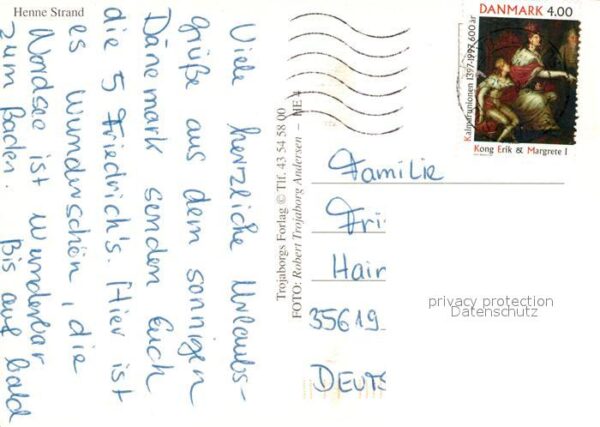 Henne Strand
Viele herzliche Urlaubs-
grüße aus dem sonnigen
Dänemark senden Euch
die 5 Friedrich's. Hier ist
es wunderschön, die
Nordsee ist wunderbar
zum Baden. Bis auf bald
Trojaborgs Forlag © Tlf. 43 54 58 00
FOTO: Robert Trojaborg Andersen – HE 4
DANMARK 4.00
Kalmarunionen 1397-1997 600 år
Kong Erik & Margrete I
Familie
Fri
Hair
35619
DEUTS
privacy protection
Datenschutz